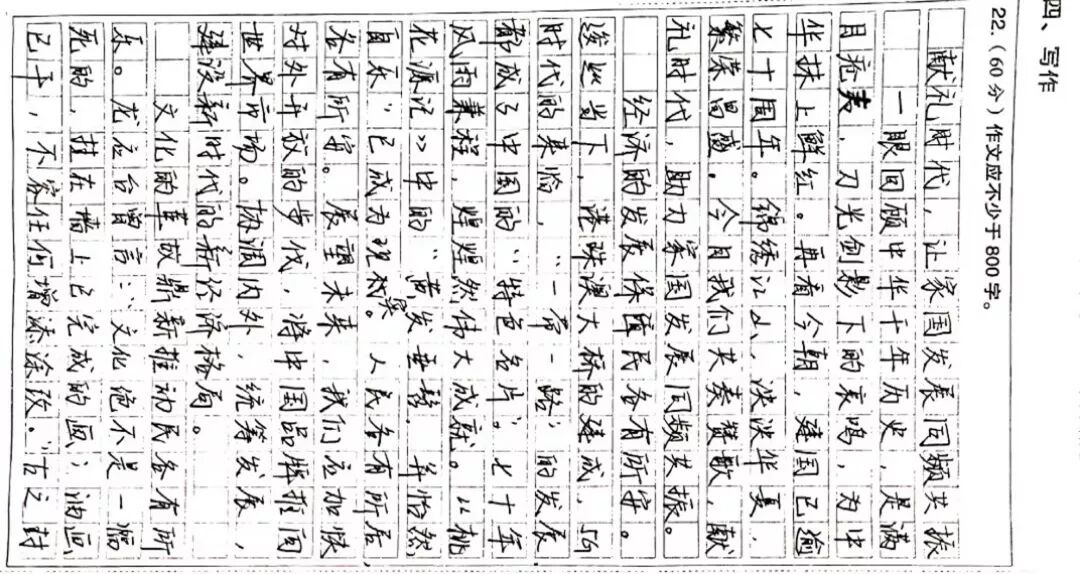 四、写作
22.（60分）作文应不少于800字。
献礼时代，让家国发展同频共振
一眼回顾中华千年历史，是满
目疮夷，刀光剑影下的哀鸣，为中
华抹上鲜红。再看今朝，建国已逾
七十周年。锦绣江山，泱泱华夏，
繁荣昌盛。今日我们共奏赞歌，献
礼时代，助力家国发展同频共振。
经济的发展保缉民各有所安。
港珠澳大桥的建成，5G
时代的来临，“一带一路”的发展
都成了中国的“特色名片”。七十年
风雨兼程，煌煌然伟大成就。以桃
花源记》中的“黄发垂髫，并怡然
自乐”已成为现实。人民各有所居
各有所安。展望未来，我们应加快
对外开放的步伐，将中国品牌推向
世界市场。协调内外，统筹发展，
建设新时代的新经济格局。
文化的革故鼎新推动民各有所
乐。龙应台曾言：“文化绝不是一幅
死的，挂在墙上已完成的画；油画
已干，不容任何增添涂改。”古之封